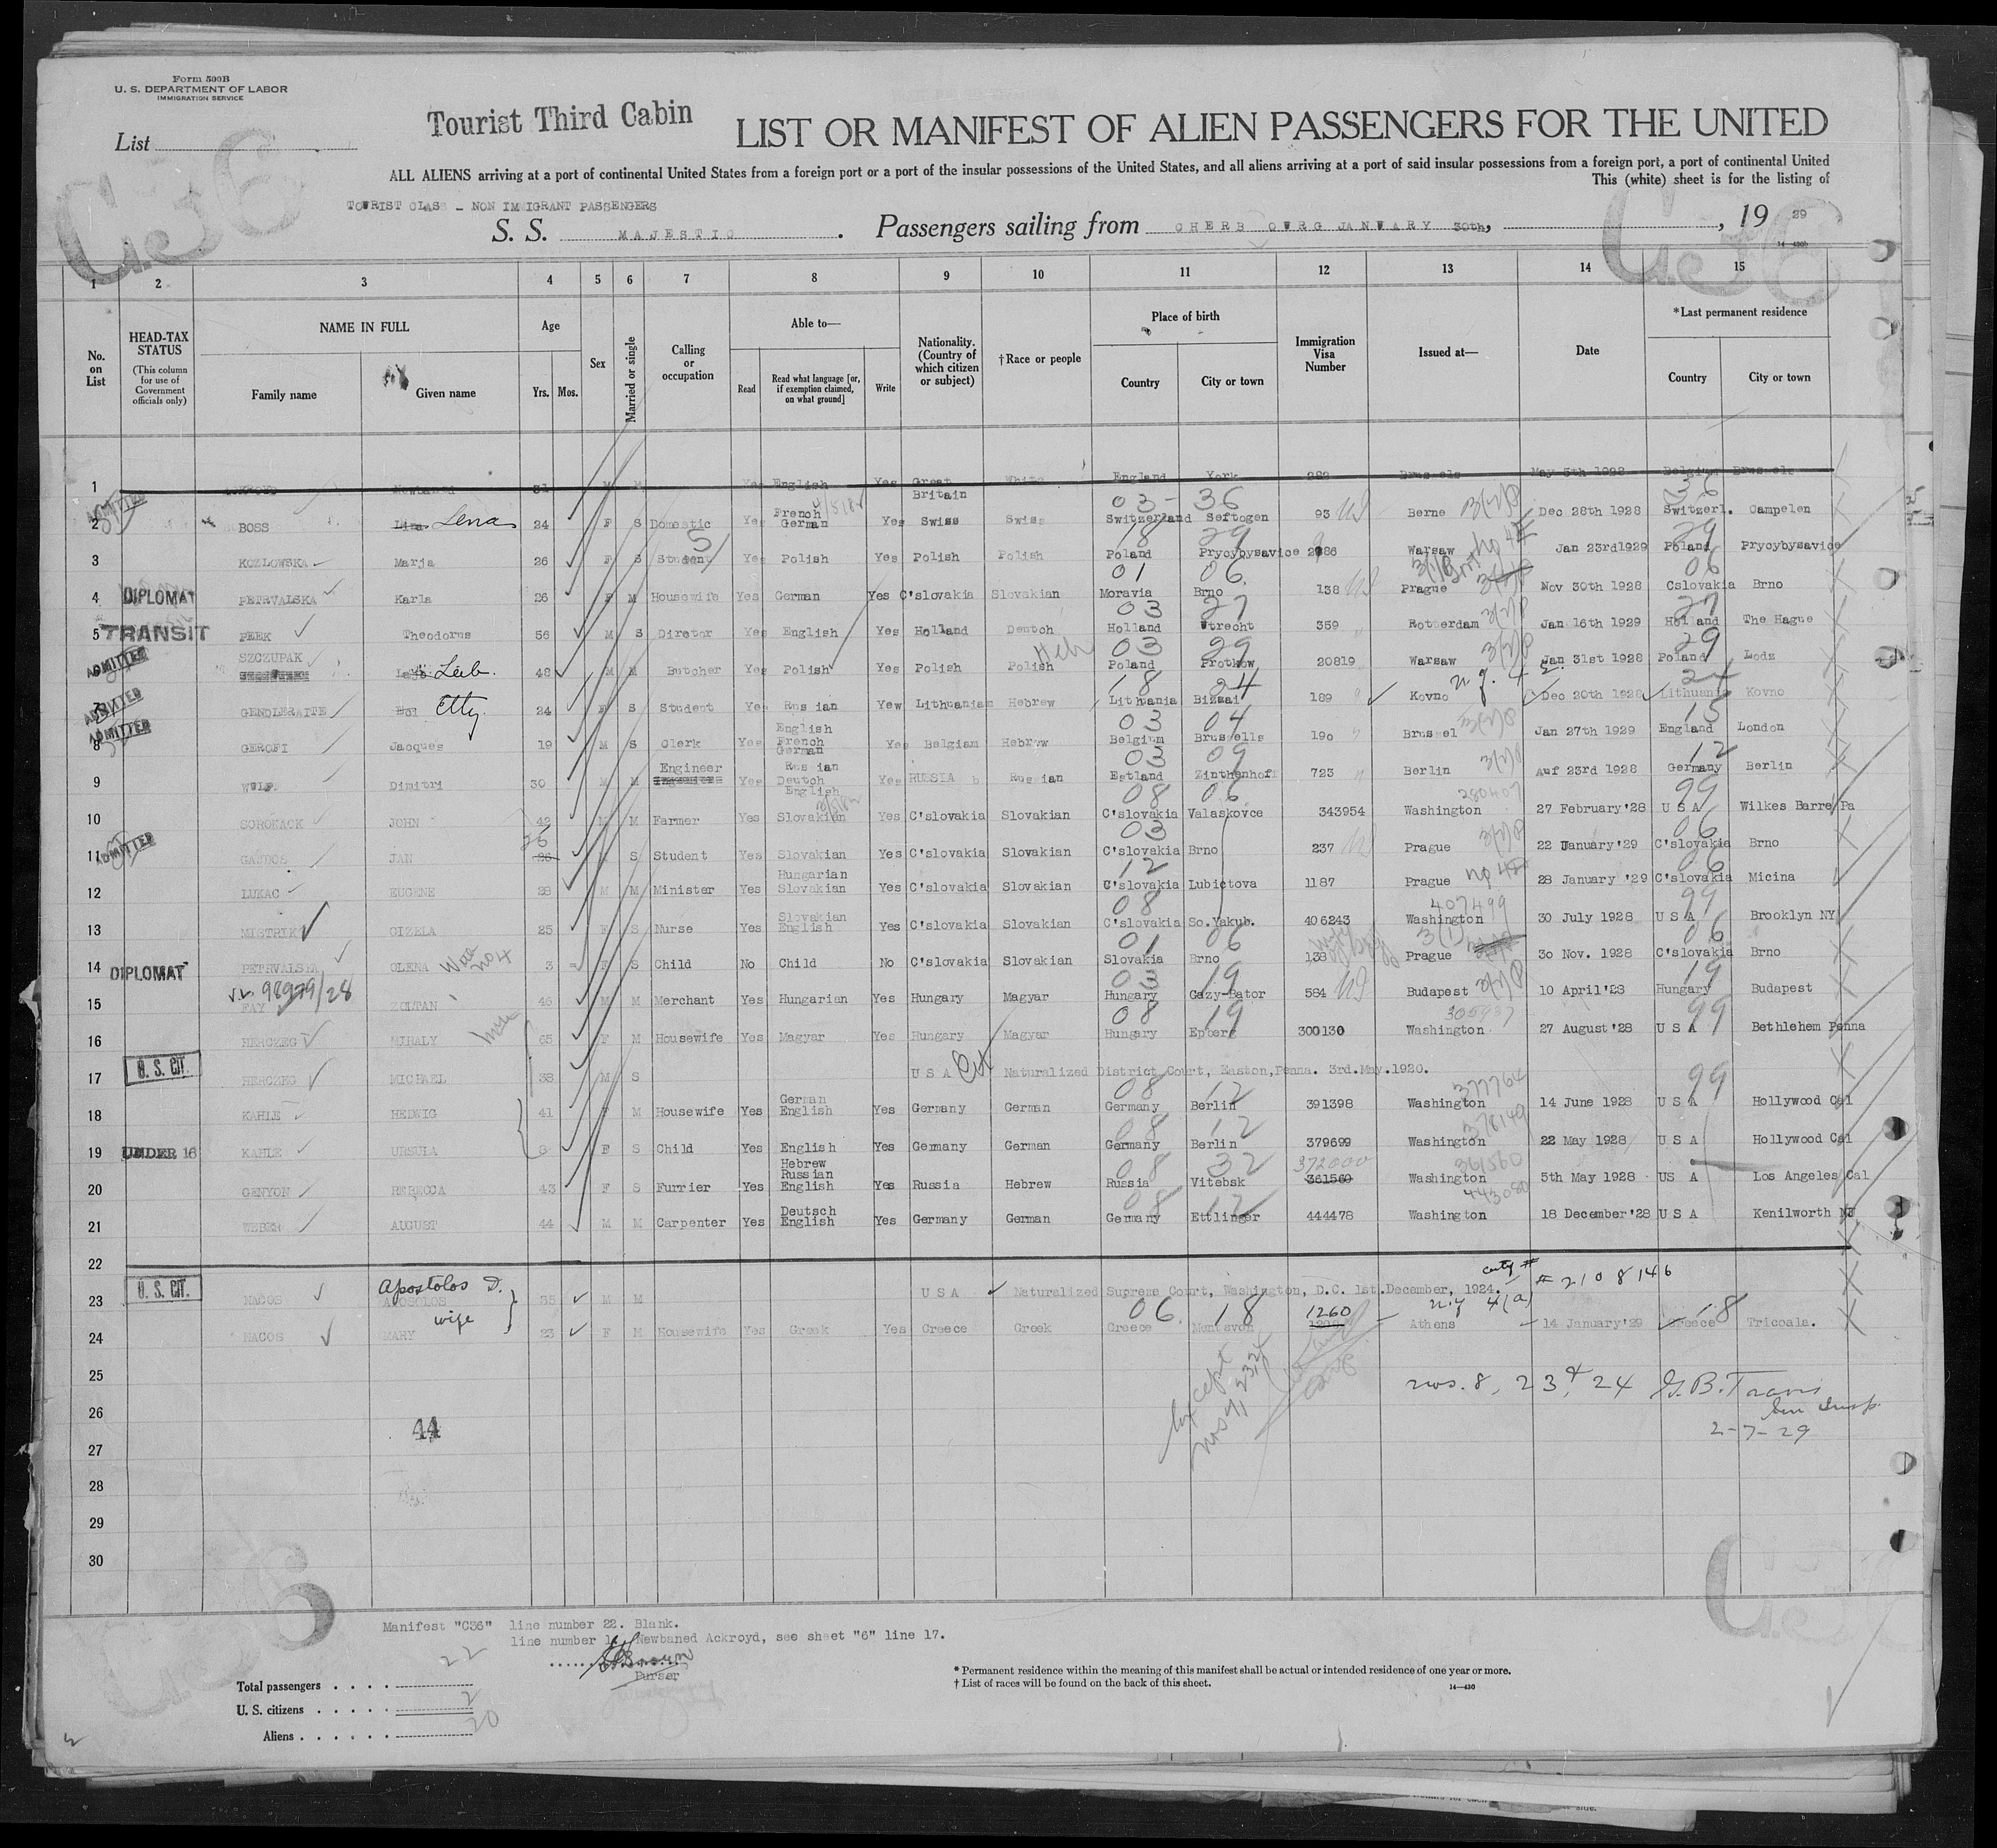 Form 500B
U. S. DEPARTMENT OF LABOR
IMMIGRATION SERVICE
List
Tourist Third Cabin
LIST OR MANIFEST OF ALIEN PASSENGERS FOR THE UNITED
ALL ALIENS arriving at a port of continental United States from a foreign port or a port of the insular possessions of the United States, and all aliens arriving at a port of said insular possessions from a foreign port, a port of continental United
This (white) sheet is for the listing of
TOURIST CLASS - NON IMMIGRANT PASSENGERS
S. S. MAJESTIC. Passengers sailing from CHERBOURG JANUARY 30th, , 19 29
C36 C36
1 2 3 4 5 6 7 8 9 10 11 12 13 14 15
No. on List
HEAD-TAX STATUS (This column for use of Government officials only)
NAME IN FULL
Family name Given name
Age
Yrs. Mos.
Sex
Married or single
Calling or occupation
Able to—
Read Read what language [or, if exemption claimed, on what ground] Write
Nationality. (Country of which citizen or subject)
†Race or people
Place of birth
Country City or town
Immigration Visa Number
Issued at—
Date
*Last permanent residence
Country City or town
1 31 M M Yes English Yes Great Britain White England York Brussels May 5th 1928 Belgium Brussels
03 - 36 36
2 ADMITTED BOSS Lina Lena 24 F S Domestic Yes French German Yes Swiss Swiss Switzerland Seftogen 93 Berne 3(2)B Dec 28th 1928 Switzerl. Campelen
18 29 29
3 KOZLOWSKA Marja 26 F S Student Yes Polish Yes Polish Polish Poland Prycybysavice 2986 Warsaw no 4E Jan 23rd1929 Poland Prycybysavice
01 06 06
4 DIPLOMAT PETRVALSKA Karla 26 F M Housewife Yes German Yes C'slovakia Slovakian Moravia Brno 138 Prague Nov 30th 1928 Cslovakia Brno
03 27 27
5 TRANSIT PEEK Theodorus 56 M S Diretor Yes English Yes Holland Deutch Holland Utrecht 359 Rotterdam Jan 16th 1929 Holland The Hague
03 29 29
6 ADMITTED SZCZUPAK Leib. 48 M M Butcher Yes Polish Yes Polish Polish Hebr Poland Protkow 20819 Warsaw Jan 31st 1928 Poland Lodz
18 24 24
7 ADMITTED GENDLERAITE Etty 24 F S Student Yes Rus ian Yew Lithuanian Hebrew Lithuania Bizaai 189 Kovno Dec 20th 1928 Lithuania Kovno
03 04 15
8 ADMITTED GEROFI Jacques 19 M S Clerk Yes English French German Yes Belgiam Hebrew Belgium Brussells 190 Brussel Jan 27th 1929 England London
03 09 12
9 WULF. Dimitri 30 M M Engineer Yes Rus ian Deutch English Yes RUSSIA Russian Estland Zinthenhof 723 Berlin Auf 23rd 1928 Germany Berlin
08 06 280407 99
10 SOROKACK JOHN 42 M M Farmer Yes Slovakian Yes C'slovakia Slovakian C'slovakia Valaskovce 343954 Washington 27 February'28 U S A Wilkes Barre Pa
03 06
11 ADMITTED GAJDOS JAN 26 25 M S Student Yes Slovakian Yes C'slovakia Slovakian C'slovakia Brno 237 Prague 22 January'29 C'slovakia Brno
12 06
12 LUKAC EUGENE 28 M M Minister Yes Hungarian Slovakian Yes C'slovakia Slovakian C'slovakia Lubietova 1187 Prague 28 January '29 C'slovakia Micina
08 407499 99
13 MISTRIK GIZELA 25 F S Nurse Yes Slovakian English Yes C'slovakia Slovakian C'slovakia So.Yakub. 406243 Washington 30 July 1928 U S A Brooklyn NY
01 06 06
14 DIPLOMAT PETRVALSKA OLENA 3 F S Child No Child No C'slovakia Slovakian Slovakia Brno 138 Prague 30 Nov. 1928 C'slovakia Brno
03 19 19
15 FAY ZOLTAN 46 M M Merchant Yes Hungarian Yes Hungary Magyar Hungary Gazy-Bator 584 Budapest 10 April'28 Hungary Budapest
08 19 99
16 HERCZEG MIHALY 65 F M Housewife Yes Magyar Yes Hungary Magyar Hungary Epberg 300130 Washington 27 August'28 U S A Bethlehem Penna
17 U. S. CIT. HERCZEG MICHAEL 38 M S U S A Cit Naturalized District Court, Easton,Penna. 3rd.May.1920.
08 12 377764 99
18 KAHLE HEDWIG 41 F M Housewife Yes German English Yes Germany German Germany Berlin 391398 Washington 14 June 1928 U S A Hollywood Cal
08 12 378149
19 UNDER 16 KAHLE URSULA F S Child Yes English Yes Germany German Germany Berlin 379699 Washington 22 May 1928 U S A Hollywood Cal
08 32 372000 361560
20 GENYON REBECCA 43 F S Furrier Yes Hebrew Russian English Yes Russia Hebrew Russia Vitebsk 361560 Washington 5th May 1928 US A Los Angeles Cal
08 12 443080
21 WEBER AUGUST 44 M M Carpenter Yes Deutsch English Yes Germany German Germany Ettlinger 444478 Washington 18 December'28 U S A Kenilworth NJ
22
23 U. S. CIT. MACOS Apostolos D. APOSOLOS 35 M M U S A Naturalized Supreme Court, Washington, D.C. 1st.December, 1924. # 2108146
wife 06 18 1260 n.y 4(a) 18
24 MACOS MARY 23 F M Housewife Yes Greek Yes Greece Greek Greece Athens 14 January'29 Greece Tricoala.
25 nos. 8, 23 & 24 G.B. Travis
26 44 Imm Insp.
27 2-7-29
Except nos
28
29
30
Manifest "C36" line number 22. Blank.
line number 1. Newbaned Ackroyd, see sheet "6" line 17.
Purser
Total passengers 22
U. S. citizens 2
Aliens 20
* Permanent residence within the meaning of this manifest shall be actual or intended residence of one year or more.
† List of races will be found on the back of this sheet.
14—430